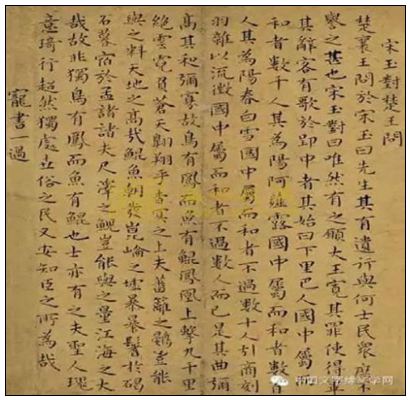 宋玉對楚王問
楚襄王問於宋玉曰先生其有遺行與何士民衆庶不
譽之甚也宋玉對曰唯然有之願大王寬其罪使得畢
其辭客有歌於郢中者其始曰下里巴人國中屬而
和者數千人其為陽阿薤露國中屬而和者數百
人其為陽春白雪國中屬而和者不過數十人引商刻
羽雜以流徵國中屬而和者不過數人而已是其曲彌
高其和彌寡故鳥有鳳而魚有鯤鳳凰上擊九千里
絕雲霓負蒼天翱翔乎杳冥之上夫藩籬之鷃豈能
與之料天地之高哉鯤魚朝發崑崙之墟暴鬐於碣
石暮宿於孟諸夫尺澤之鯢豈能與之量江海之大
哉故非獨鳥有鳳而魚有鯤也士亦有之夫聖人瑰
意琦行超然獨處世俗之民又安知臣之所為哉
寵書一過